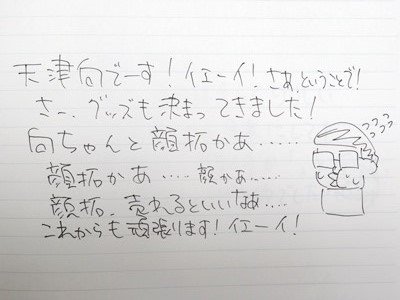 天津向でーす!イエーイ!さあ、ということで!
さー、グッズも決まってきました!
向ちゃんと顔拓かあ……
顔拓かあ….顔かあ……
顔拓、売れるといいなあ….
これからも頑張ります!イエーイ!